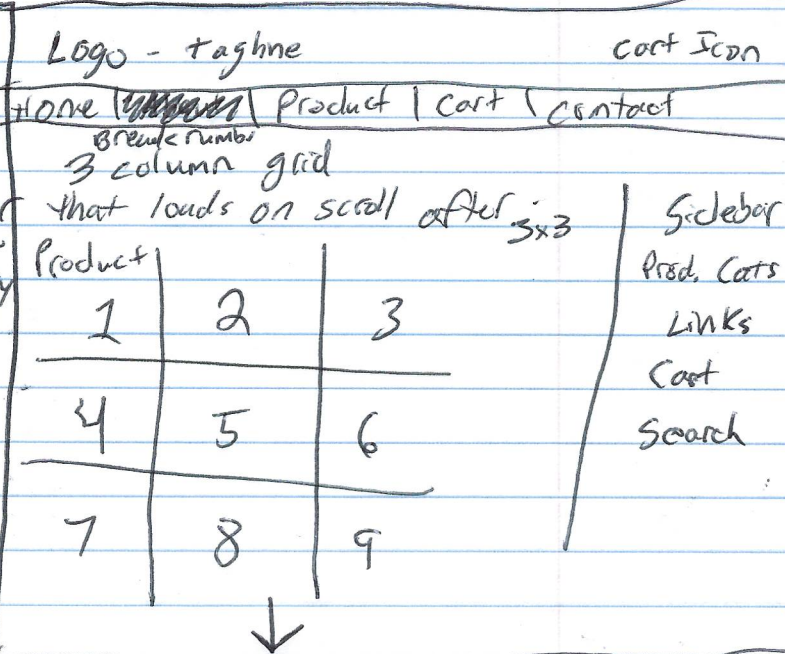 Logo - tagline
Cart Icon
Home | Product | Cart | Contact
3 column grid
that loads on scroll after 3x3
Product
1 2 3
4 5 6
7 8 9
Sidebar
Prod. Cats
Links
Cart
Search